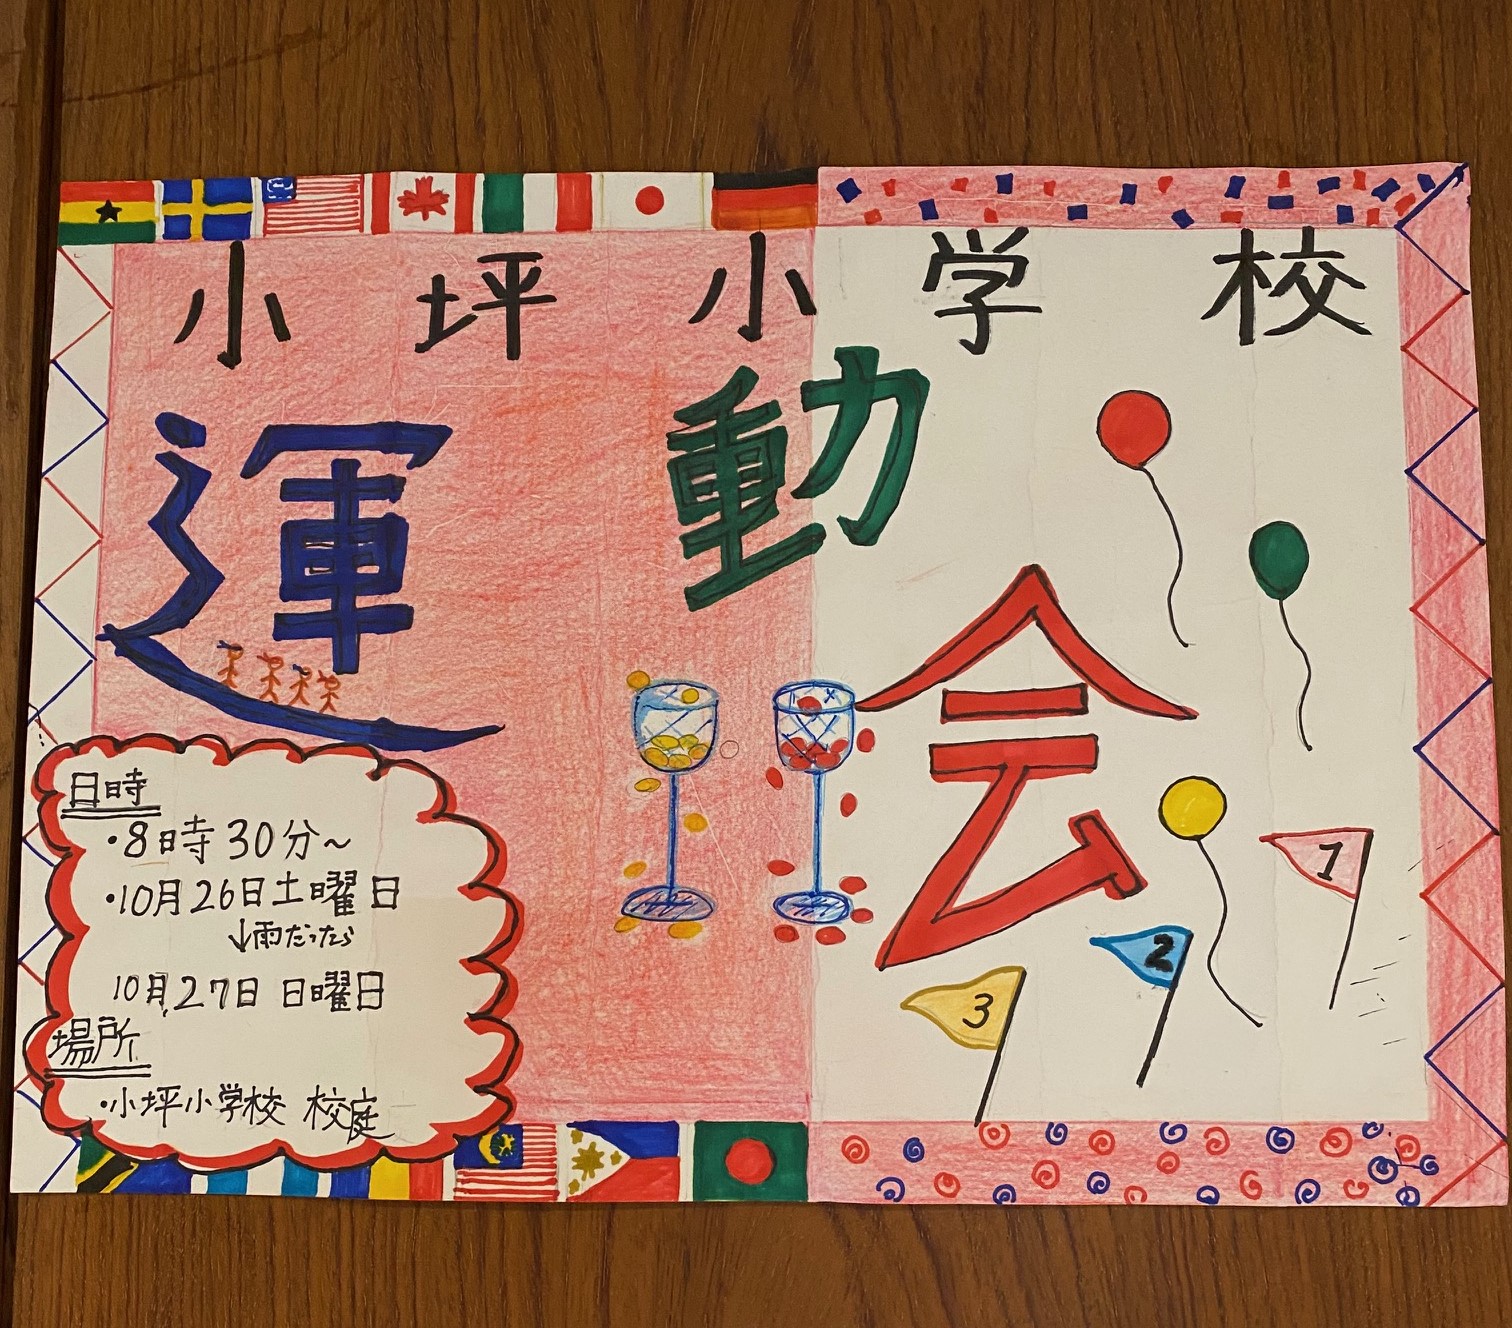 小坪小学校
運動会
日時
・8時30分～
・10月26日土曜日
↓雨だったら
10月27日 日曜日
場所
・小坪小学校 校庭
1
2
3